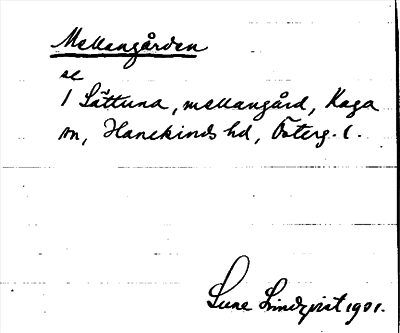 Mellangården
se
1 Sättuna, mellangård, Kaga
sn, Hanekinds hd, Österg. l.
Sune Lindqvist 1901.